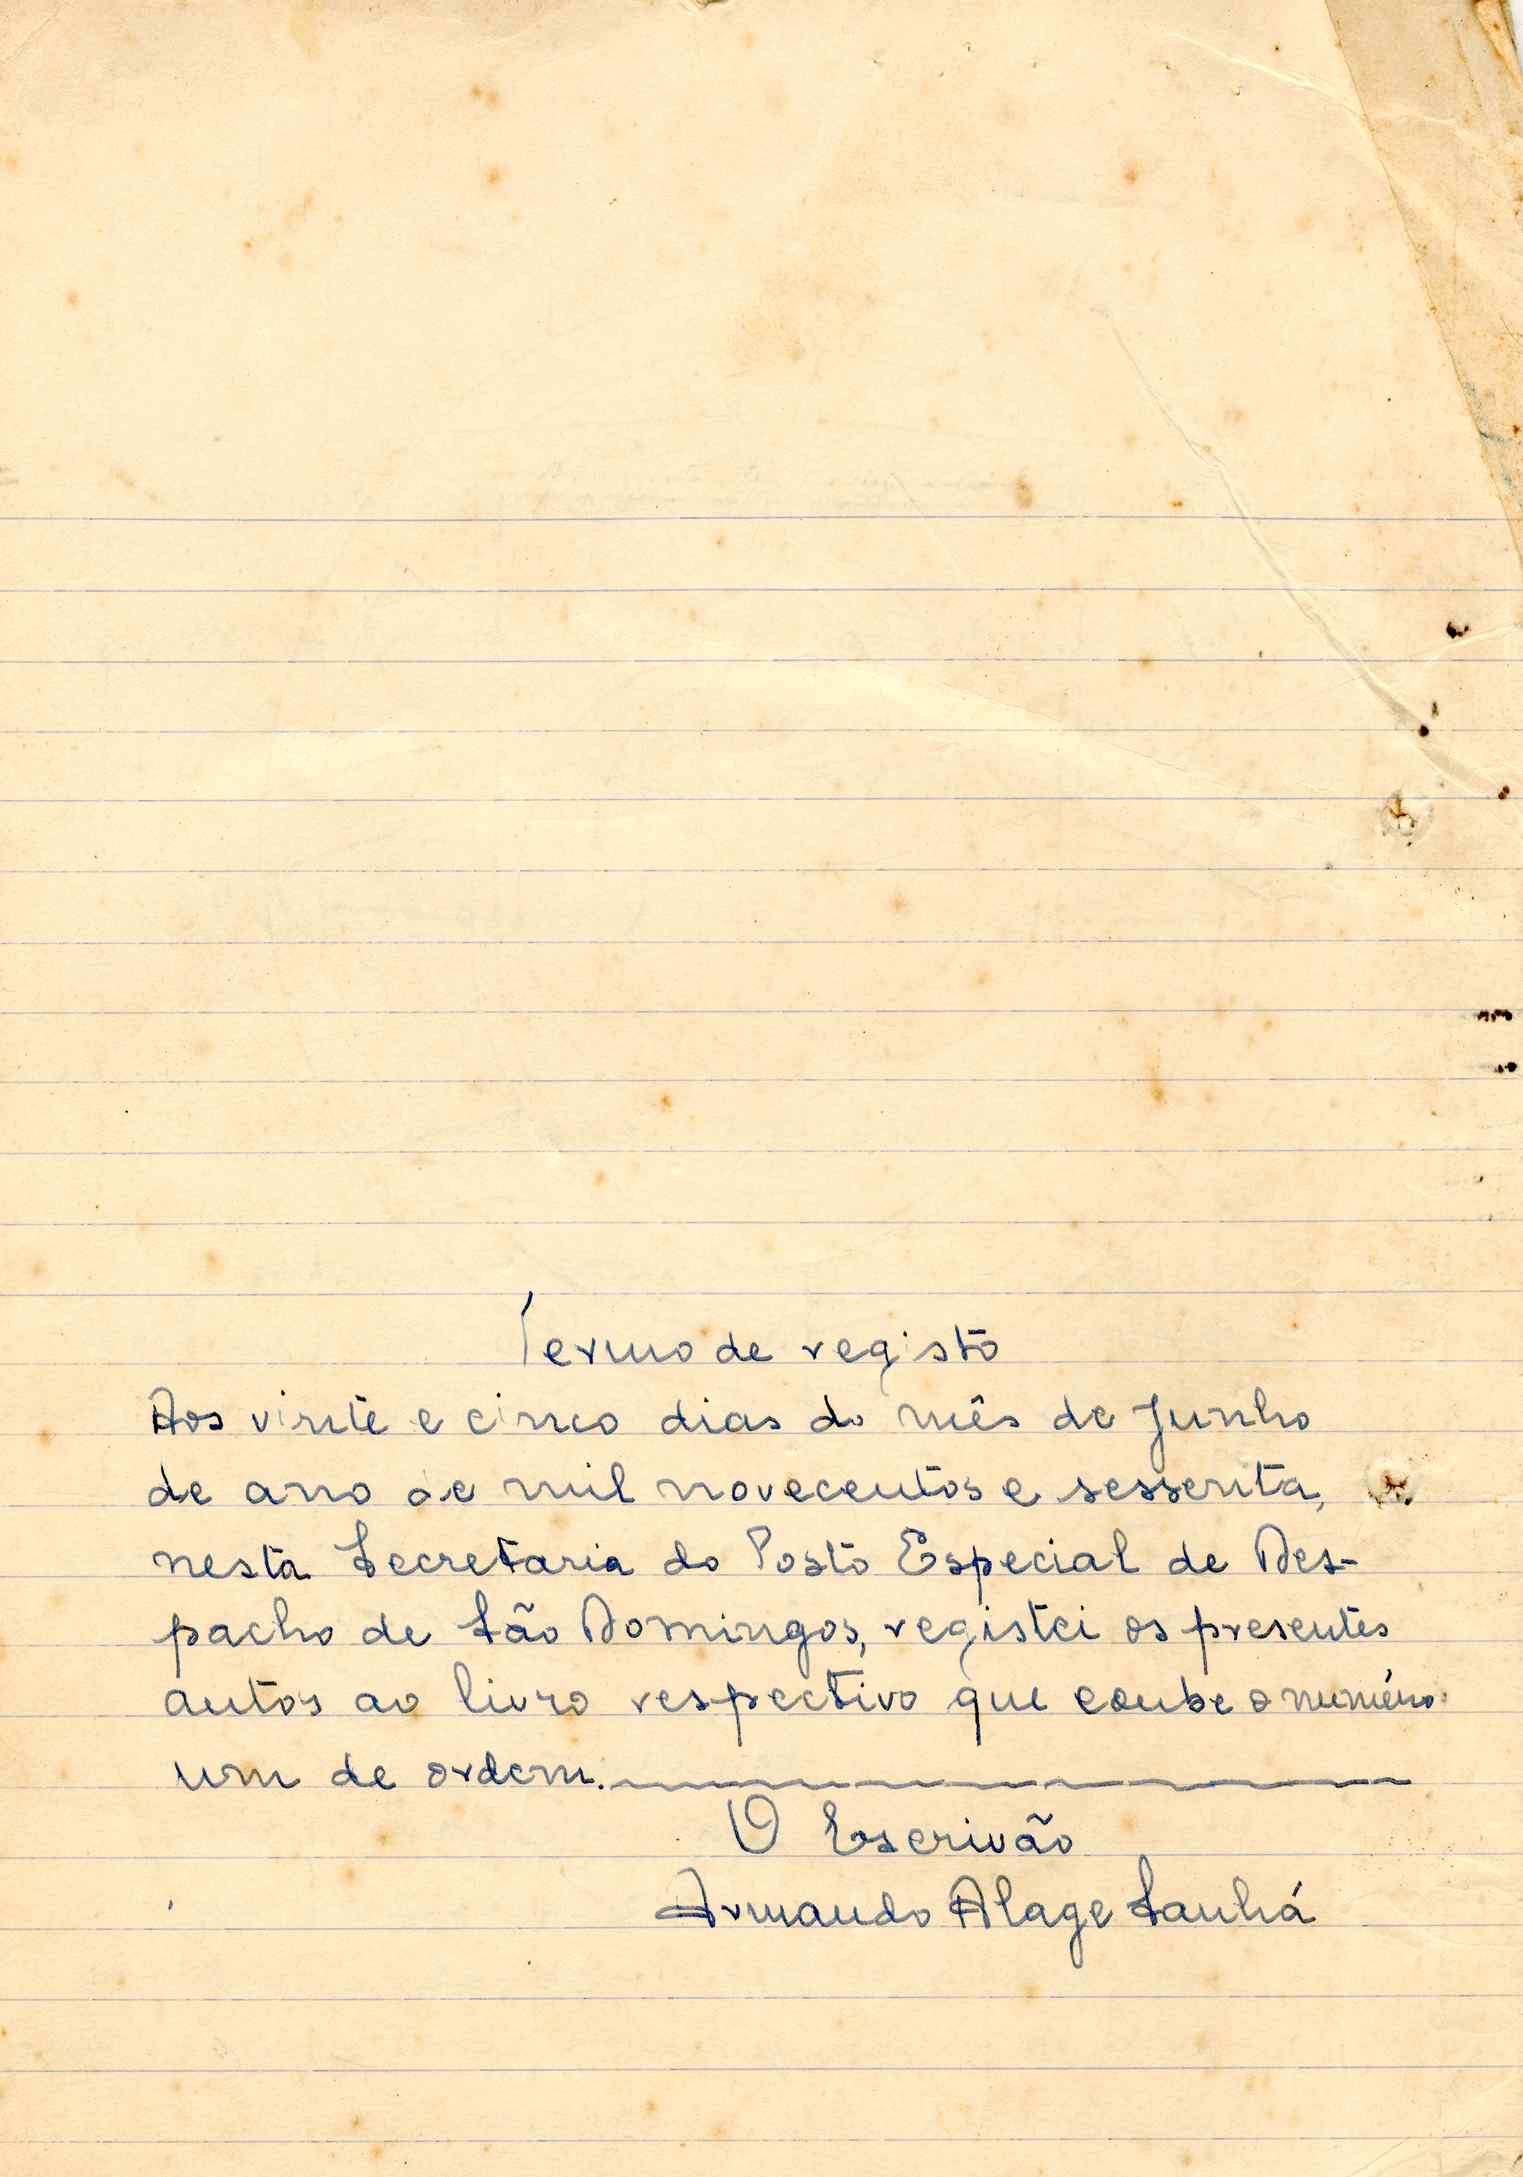 Termo de registo
Aos vinte e cinco dias do mês de Junho
de ano de mil novecentos e sessenta,
nesta Secretaria do Posto Especial de Des-
pacho de São Domingos, registei os presentes
autos ao livro respectivo que coube o número
um de ordem.
O Escrivão
Armando Alage Sanhá